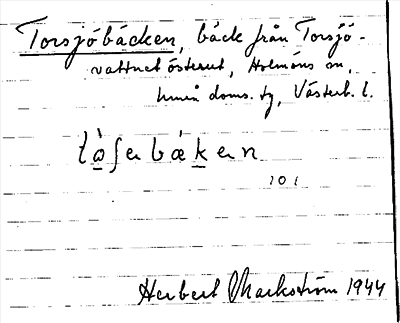 Torsjöbäcken, bäck från Torsjö-
vattnet österut, Holmöns sn,
Umeå doms. tg, Västerb. l.
tò̱ʃerbæḵen
101
Herbert Markström 1944